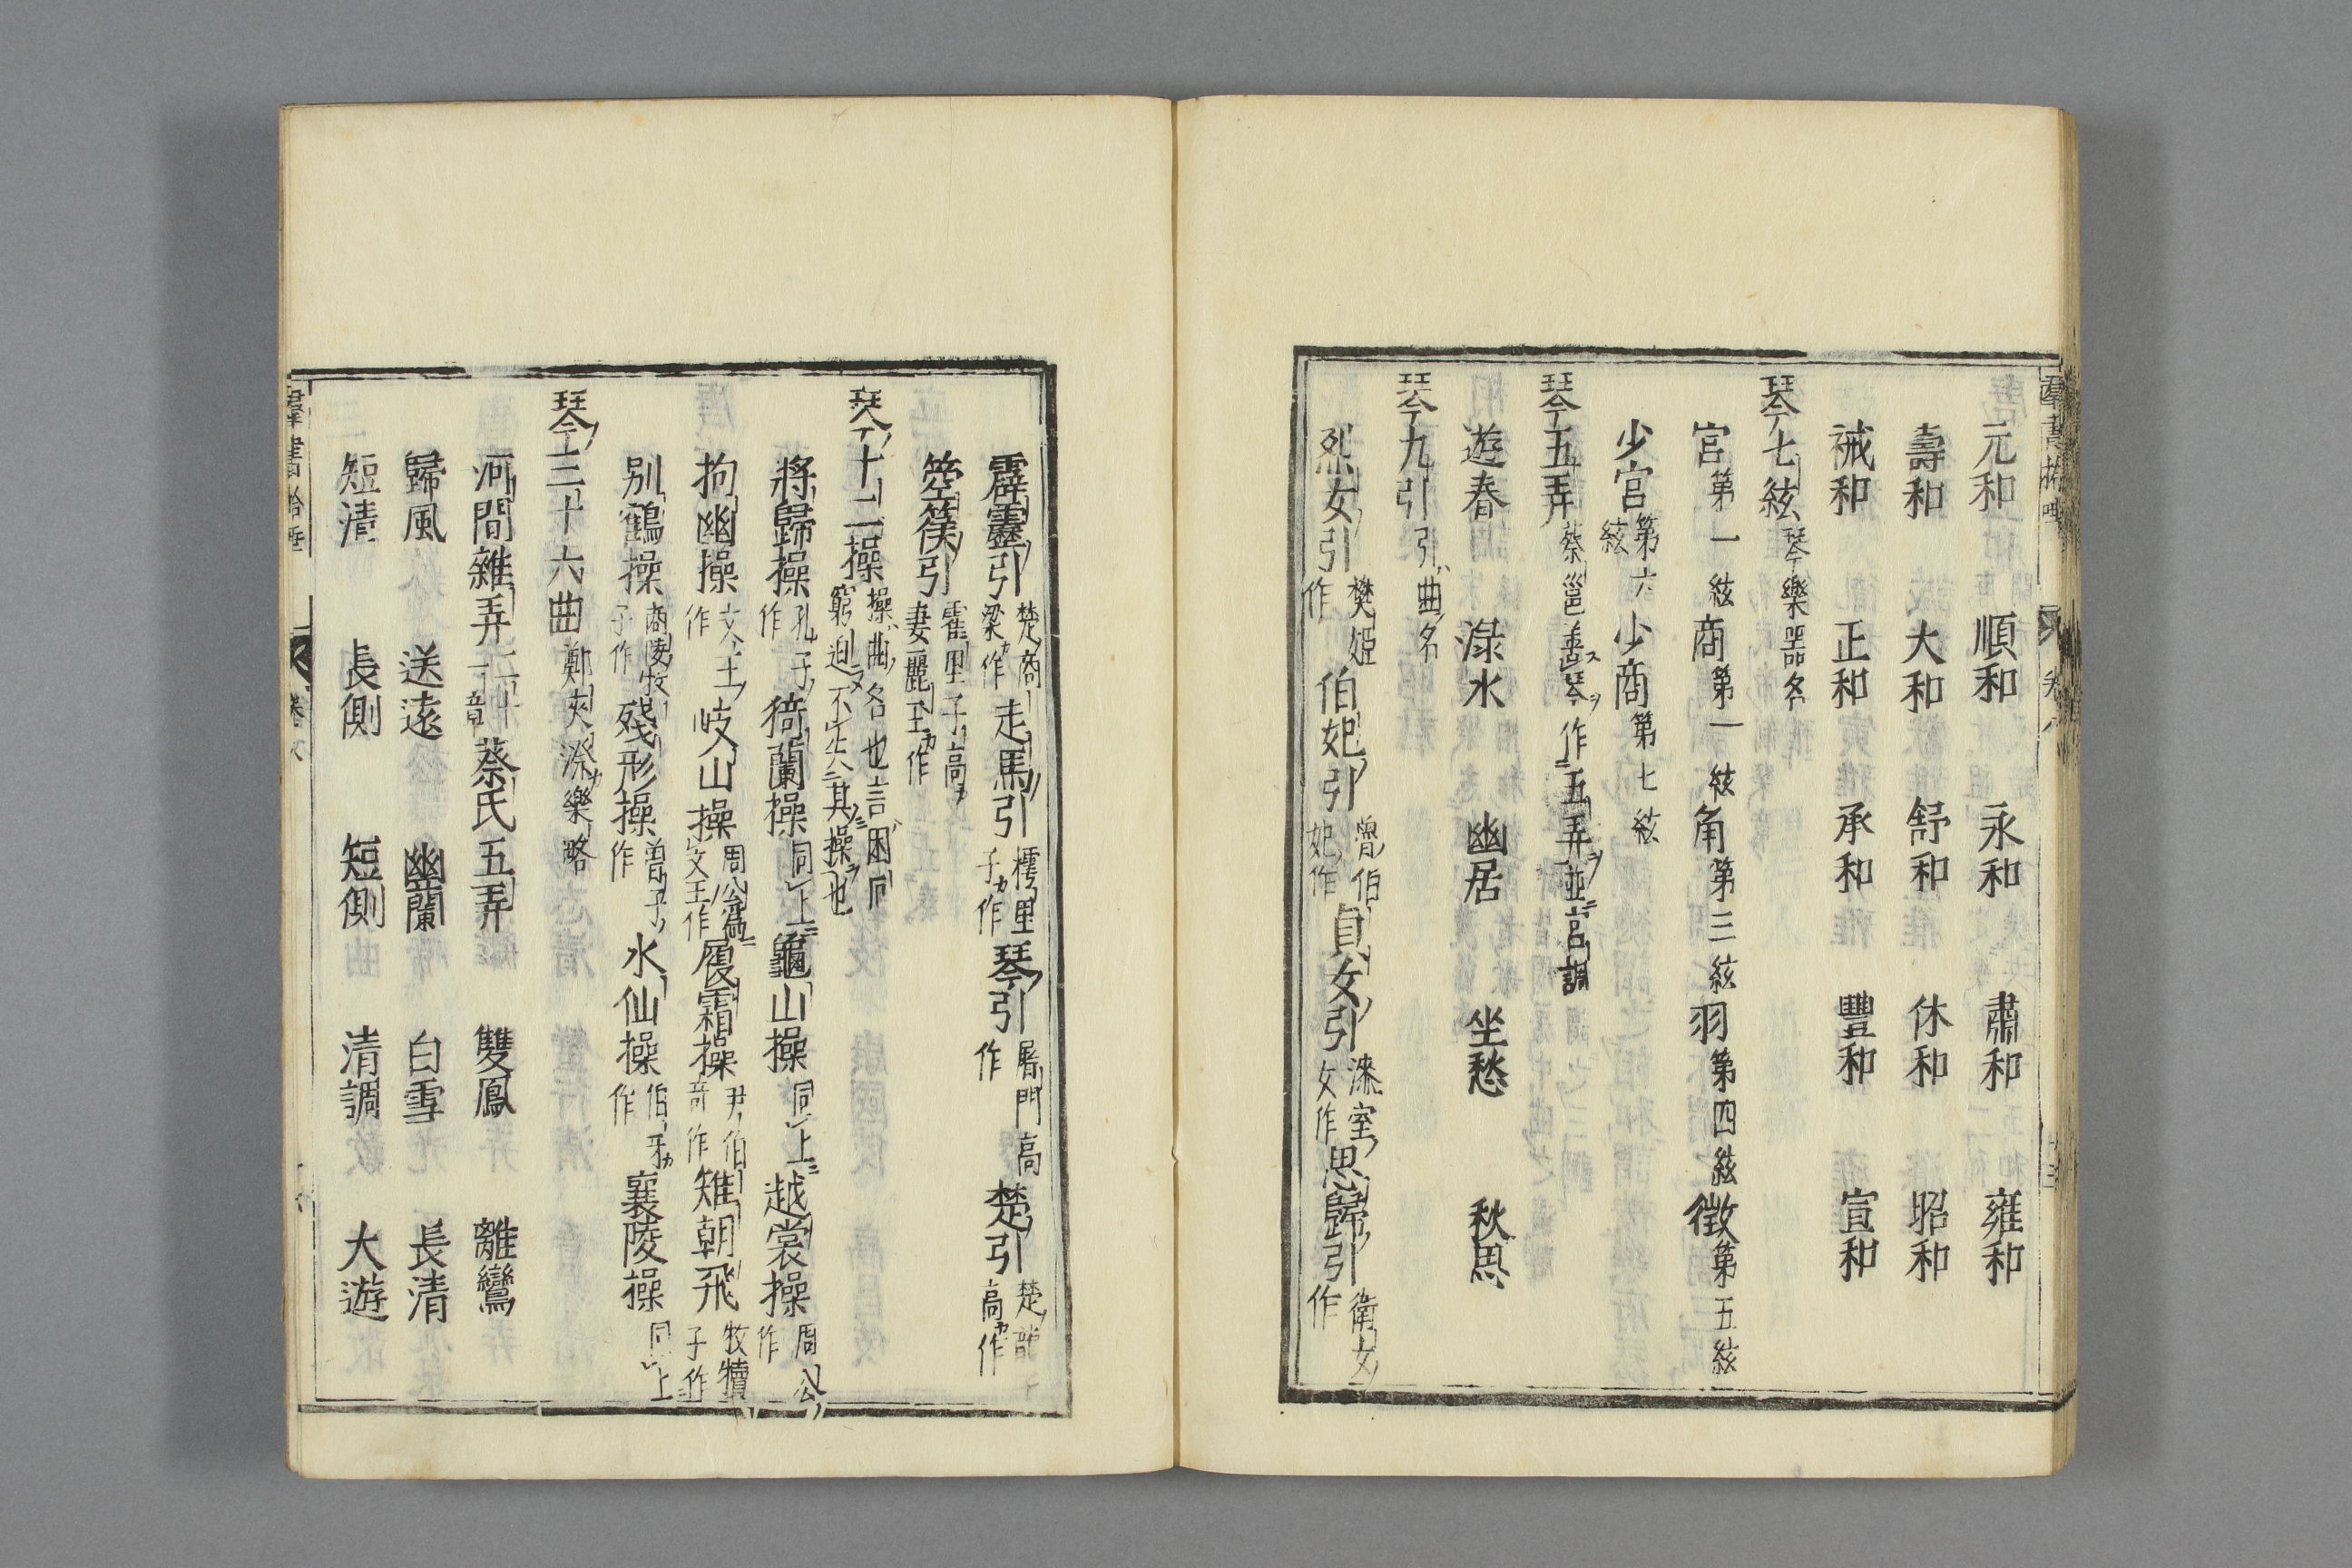 元和　順和　永和　肅和　雍和
壽和　大和　舒和　休和　昭和
祴和　正和　承和　豐和　宣和
琴七絃 琴樂器名
宮 第一絃 商 第一絃 角 第三絃 羽 第四絃 徵 第五絃
少宮 第六絃 少商 第七絃
琴五弄 蔡邕善琴作五弄並宮調
遊春　淥水　幽居　坐愁　秋思
琴九引 引曲名
烈女引 樊姬作 伯妃引 魯伯妃作 貞女引 漆室女作 思歸引 衛女作
霹靂引 楚商梁作 走馬引 樗里子作 琴引 屠門高作 楚引 楚龍高作
箜篌引 霍里子高妻麗玉作
琴十二操 操曲名也言困厄窮迫不失其操也
將歸操 孔子作 猗蘭操 同上 龜山操 同上 越裳操 周公作
拘幽操 文王作 岐山操 周公為文王作 履霜操 尹伯奇作 雉朝飛 牧犢子作
別鶴操 商陵牧子作 殘形操 曾子作 水仙操 伯牙作 襄陵操 同上
琴三十六曲 鄭夾漈樂略
河間雜弄 二十一章 蔡氏五弄　雙鳳　離鸞
歸風　送遠　幽蘭　白雪　長清
短清　長側　短側　清調　大遊